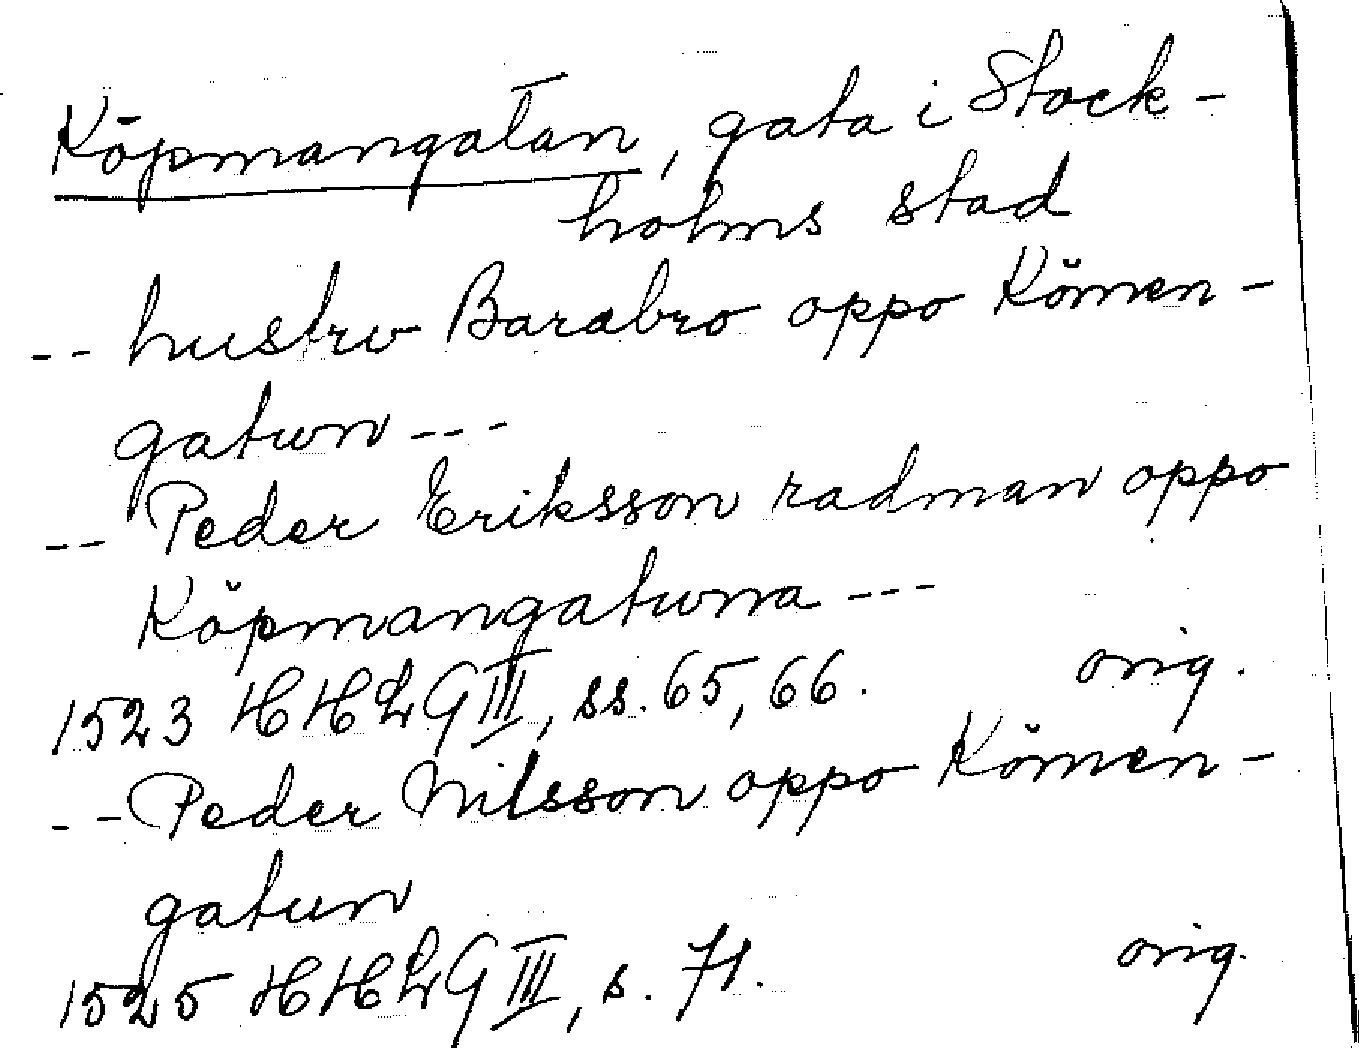 Köpmangatan, gata i Stock-
holms stad
-- hustrv Barabro oppo Kömen-
gatwn ---
-- Peder Eriksson radman oppo
Köpmangatwna ---
1523 HHLG III, ss. 65, 66. orig.
-- Peder Nilsson oppo Kömen-
gatun
1525 HHLG III, s. 71. orig.